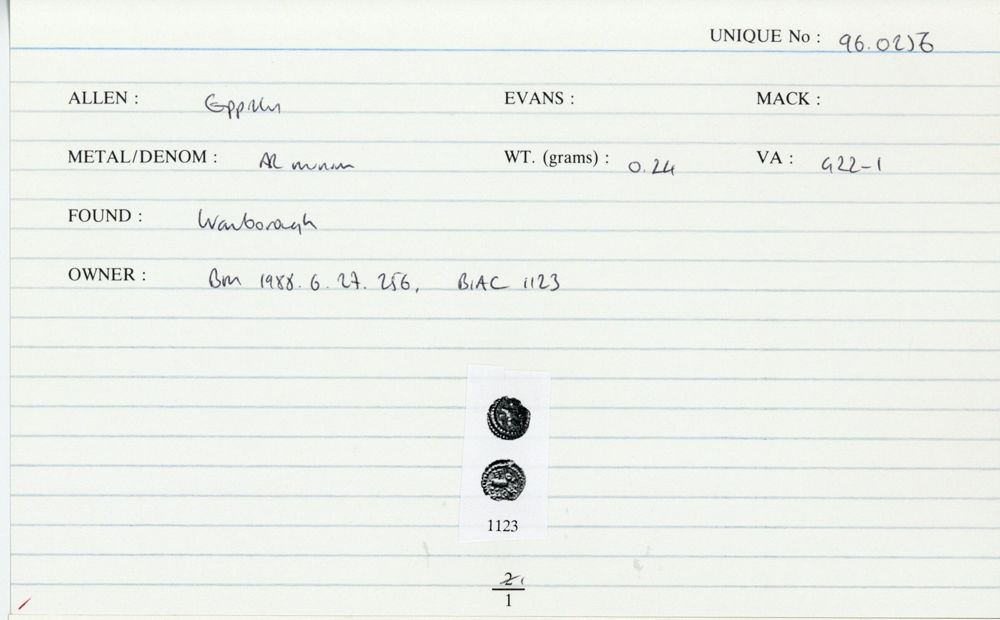 UNIQUE No : 96.0256
ALLEN : Eppillus EVANS : MACK :
METAL/DENOM : AR minim WT. (grams) : 0.24 VA : 422-1
FOUND : Wanborough
OWNER : BM 1988. 6. 27. 256, BIAC 1123
1123
2
1